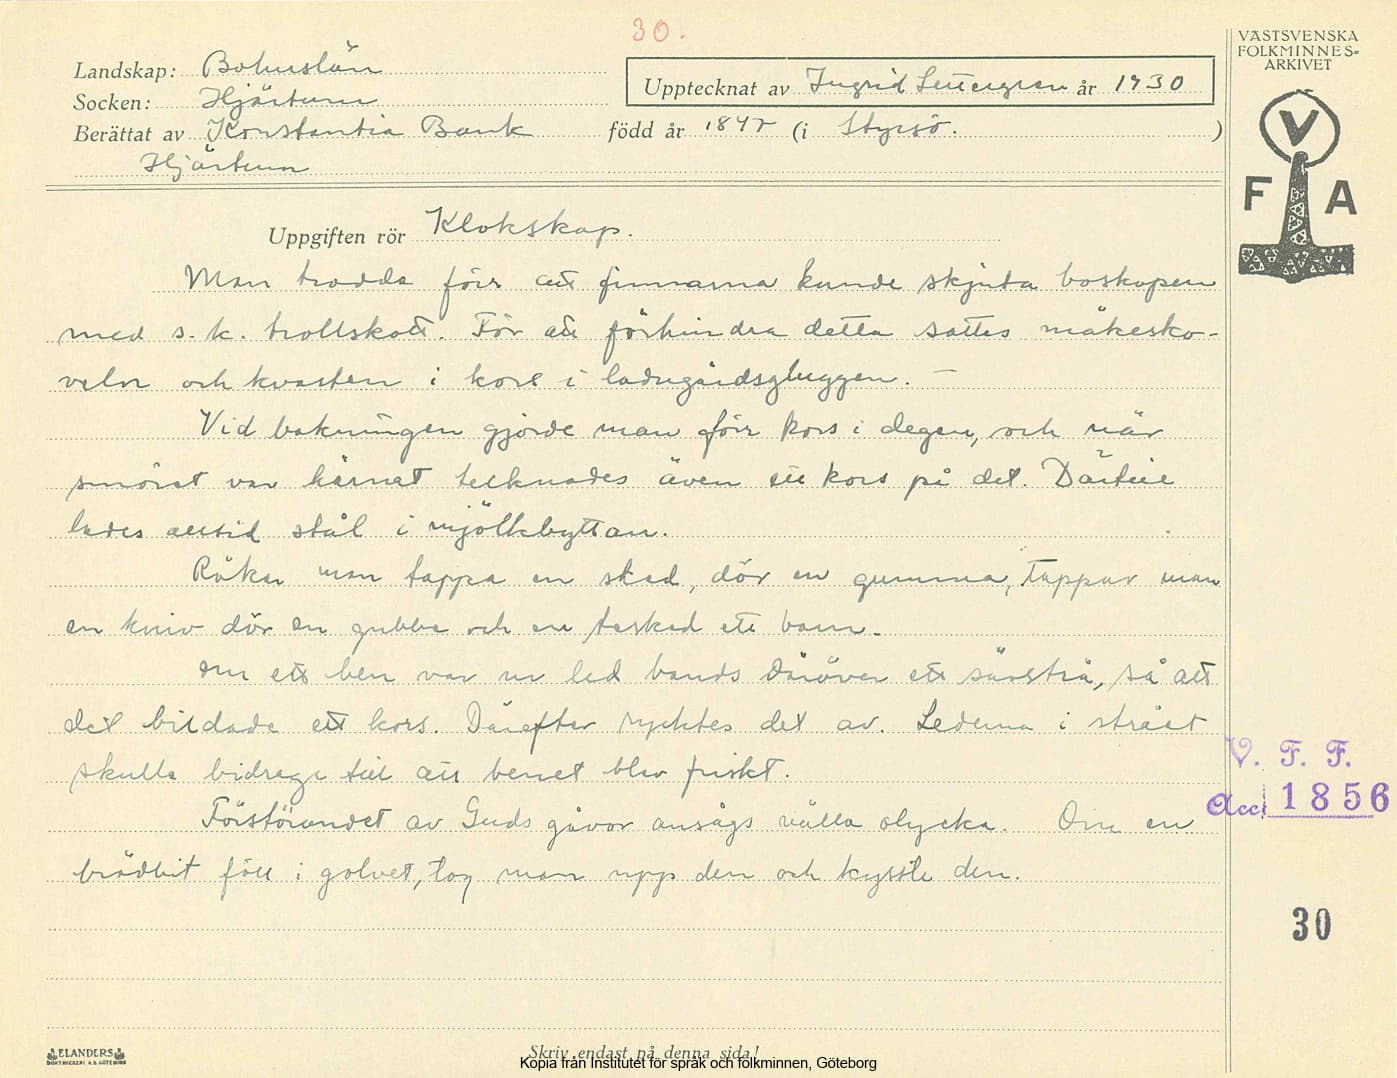 30.
VÄSTSVENSKA
FOLKMINNES-
ARKIVET
V
F A
Landskap: Bohuslän
Socken: Hjärtum
Upptecknat av Ingrid Settergren år 1930
Berättat av Konstantia Bank född år 184 (i Styrsö.)
Hjärtum
Uppgiften rör Klokskap.
Man trodde förr att finnarna kunde skjuta boskapen
med s.k. trollskott. För att förhindra detta sattes måkesko-
veln och kvasten i kors i ladugårdsgluggen. –
Vid bakningen gjorde man förr kors i degen, och när
smöret var kärnat tecknades även ett kors på det. Därtill
lades alltid stål i mjölkbyttan.
Råkar man tappa en sked, dör en gumma, tappar man
en kniv dör en gubbe och en tesked ett barn.
Om ett ben var ur led bands däröver ett sävstrå, så att
det bildade ett kors. Därefter rycktes det av. Lederna i strået
skulle bidraga till att benet blev friskt.
Förstörandet av Guds gåvor ansågs vålla olycka. Om en
brödbit föll i golvet, tog man upp den och kysste den.
V. F. F.
Acc. 1856
30
ELANDERS
BOKTRYCKERI A.B. GÖTEBORG
Skriv endast på denna sida!
Kopia från Institutet för språk och folkminnen, Göteborg